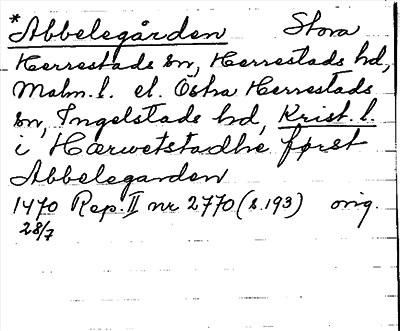 *Abbelegården Stora
Herrestads sn, Herrestads hd,
Malm. l. el. Östra Herrestads
sn, Ingelstads hd, Krist. l.
i Hærwetstadhe først
Abbelegarden
1470 Rep. II nr 2770 (s. 193) orig.
28/7